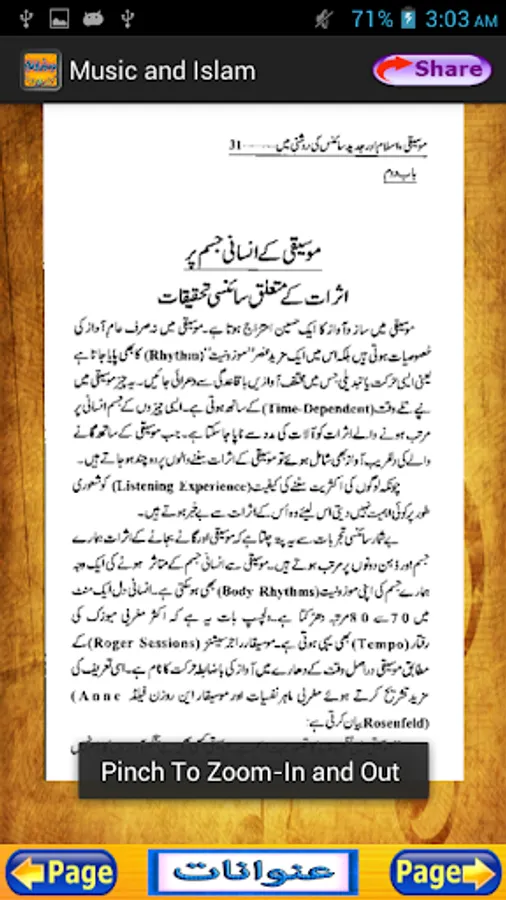 71% 3:03 AM
Music and Islam
Share
موسیقی، اسلام اور جدید سائنس کی روشنی میں ......... 31
باب دوم
موسیقی کے انسانی جسم پر
اثرات کے متعلق سائنسی تحقیقات
موسیقی میں ساز و آواز کا ایک حسین امتزاج ہوتا ہے۔ موسیقی میں نہ صرف عام آواز کی
خصوصیات ہوتی ہیں بلکہ اس میں ایک مزید عنصر "موزونیت" (Rhythm) کا بھی پایا جاتا ہے
یعنی ایسی حرکت یا تبدیلی جس میں مختلف آوازیں باقاعدگی سے دھرائی جائیں۔ یہ چیز موسیقی میں
نپے تلے وقت (Time-Dependent) کے ساتھ ہوتی ہے۔ ایسی چیزوں کے جسم انسانی پر
مرتب ہونے والے اثرات کو آلات کی مدد سے ناپا جا سکتا ہے۔ جب موسیقی کے ساتھ گانے
والے کی دلفریب آواز بھی شامل ہوئے تو موسیقی کے اثرات سننے والوں پر دو چند ہو جاتے ہیں۔
چونکہ لوگوں کی اکثریت سننے کی کیفیت (Listening Experience) کو شعوری
طور پر کوئی اہمیت نہیں دیتی اس لیئے وہ اُس کے اثرات سے بے خبر ہوتے ہیں۔
بے شمار سائنسی تجربات سے یہ پتہ چلتا ہے کہ موسیقی اور گانے بجانے کے اثرات ہمارے
جسم اور ذہن دونوں پر مرتب ہوتے ہیں۔ موسیقی سے انسانی جسم کے متاثر ہونے کی ایک وجہ
ہمارے جسم کی اپنی موزونیت (Body Rhythms) بھی ہو سکتی ہے۔ انسانی دل ایک منٹ
میں 70 سے 80 مرتبہ دھڑکتا ہے۔ دلچسپ بات یہ ہے کہ اکثر مغربی میوزک کی
رفتار (Tempo) بھی یہی ہوتی ہے۔ موسیقار راجر سیشنز (Roger Sessions) کے
مطابق موسیقی دراصل وقت کے دھارے میں آواز کی باضابطہ حرکت کا نام ہے۔ اسی تعریف کی
مزید تشریح کرتے ہوئے مغربی ماہر نفسیات اور موسیقار این روزن فیلڈ (Anne
Rosenfeld) بیان کرتی ہے:
Pinch To Zoom-In and Out
Page
عنوانات
Page